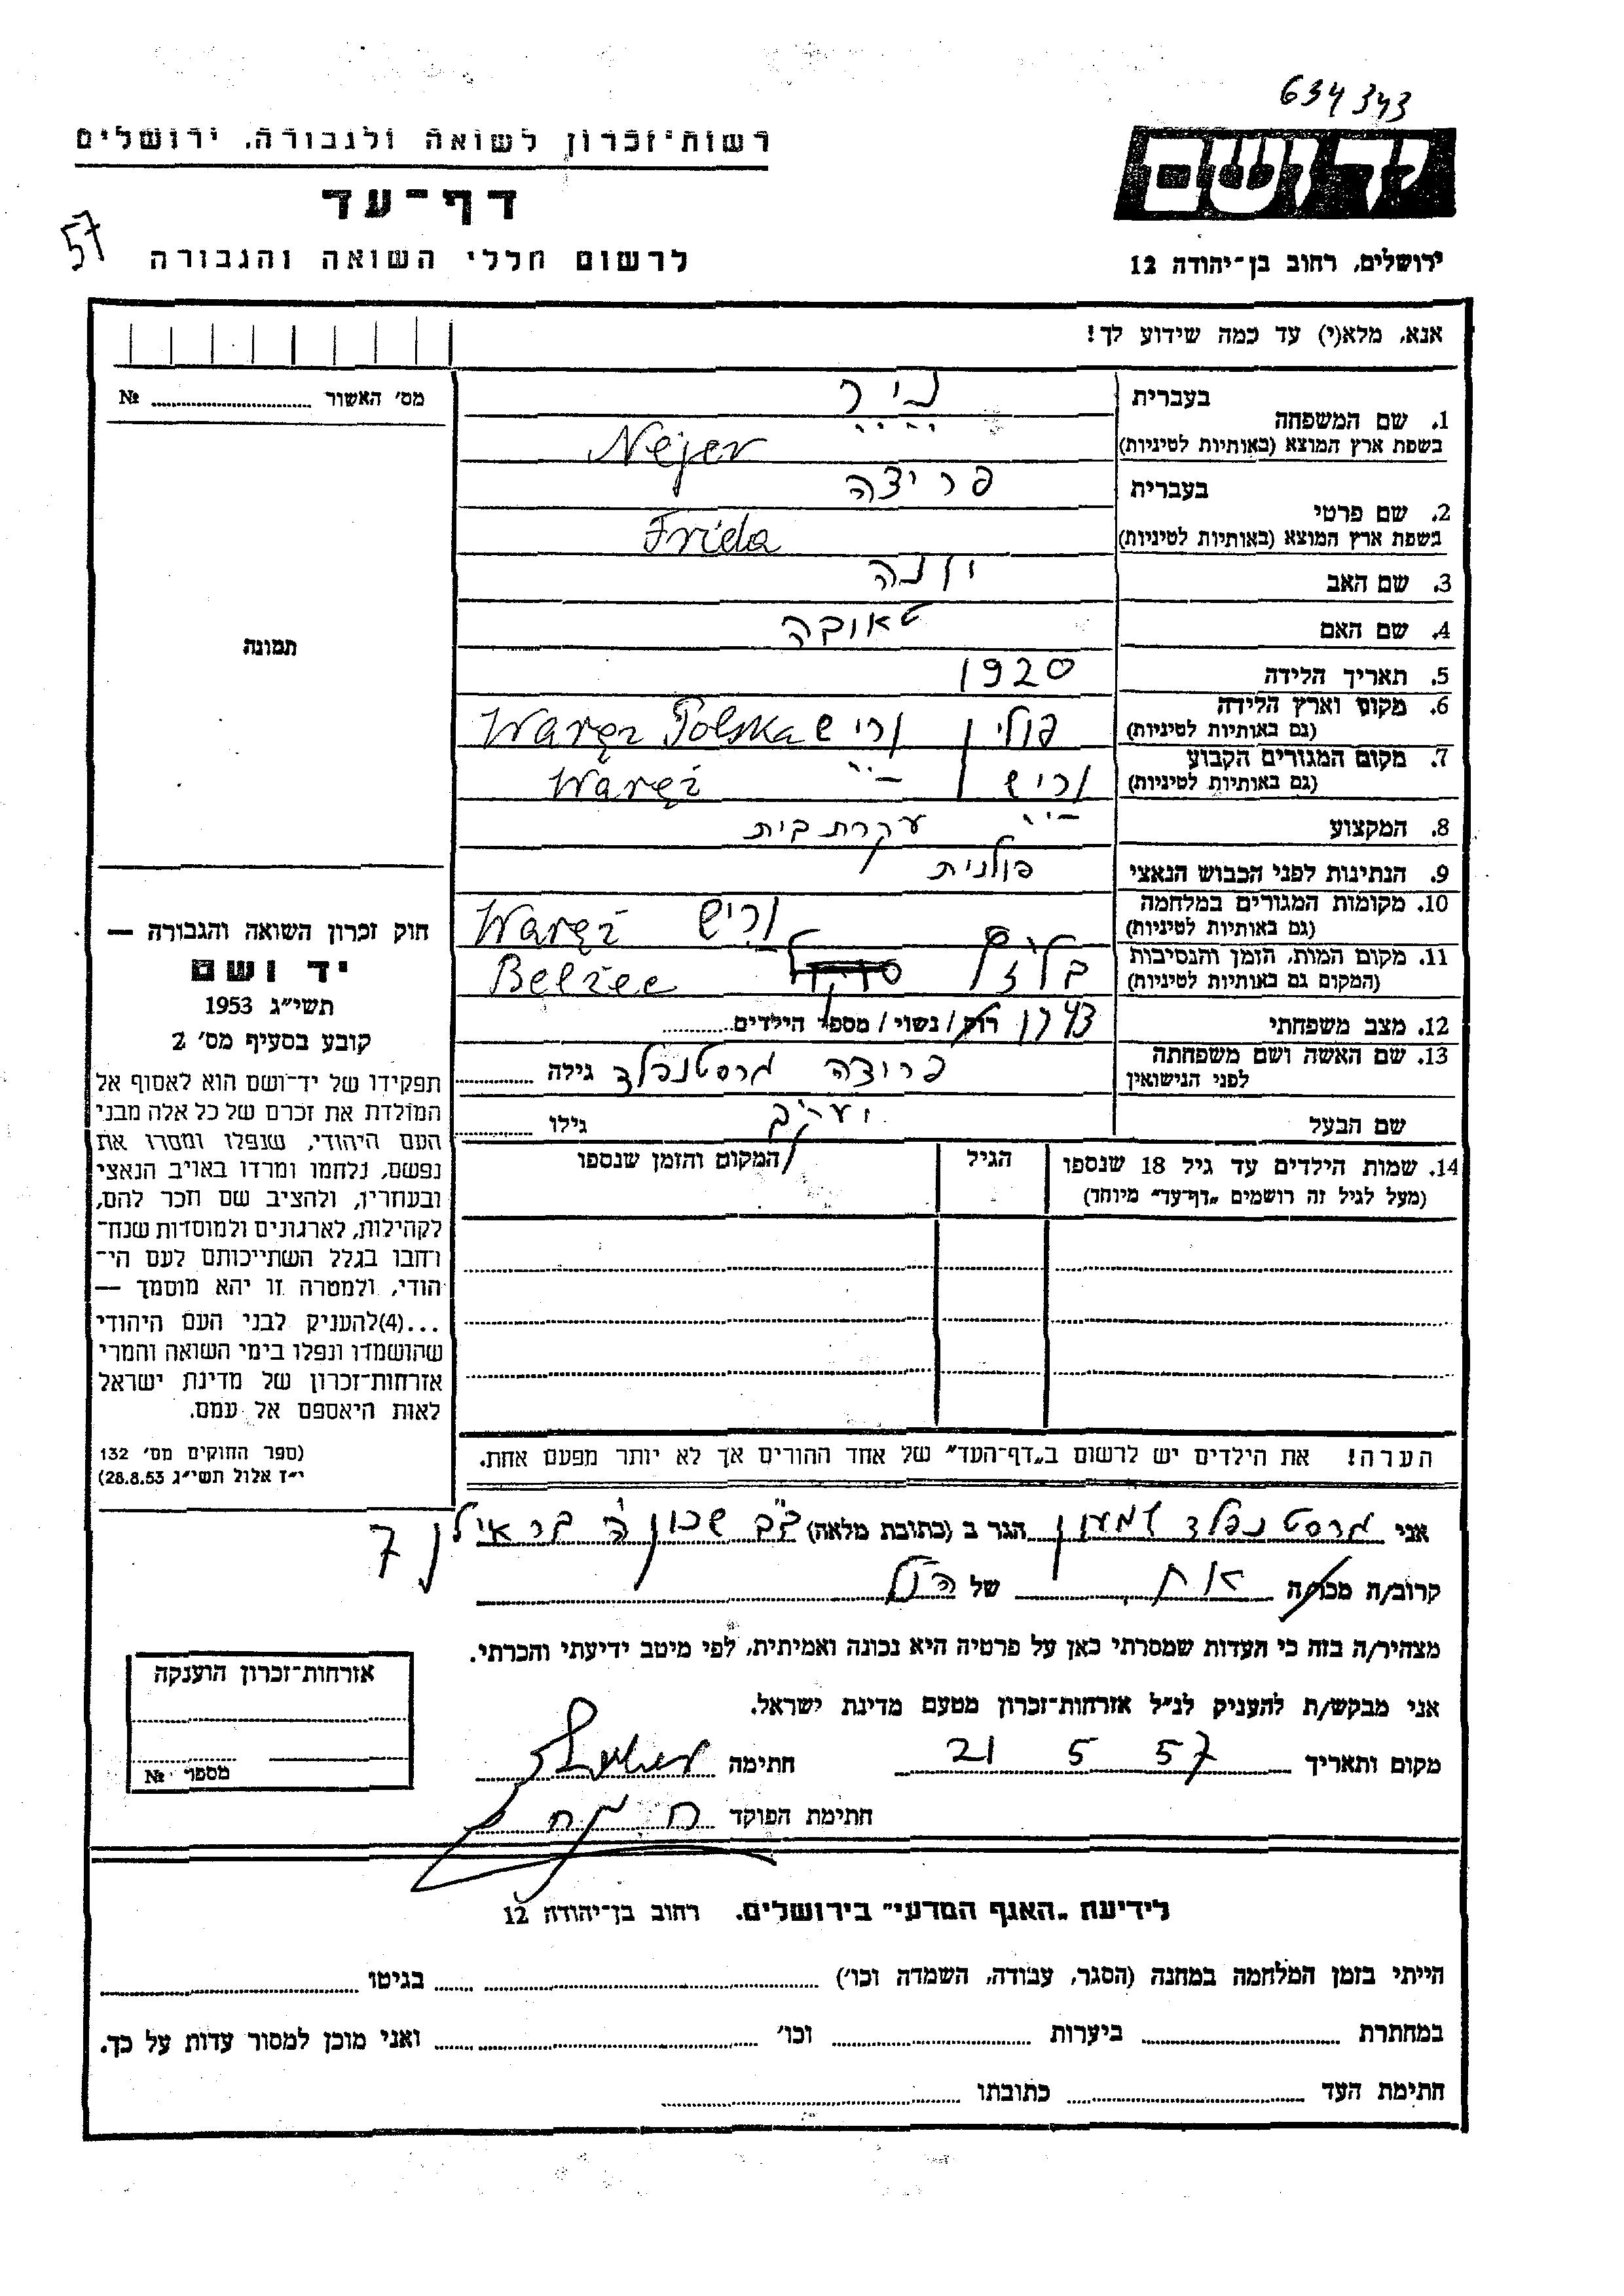 634343
יד ושם
רשות־זכרון לשואה ולגבורה, ירושלים
דף־עד
57
לרשום חללי השואה והגבורה
ירושלים, רחוב בן־יהודה 12
אנא, מלא(י) עד כמה שידוע לך!
מס׳ האשור № ........
1. שם המשפחה
בעברית
בשפת ארץ המוצא (באותיות לטיניות)
Nejer
2. שם פרטי
בעברית פרידה
בשפת ארץ המוצא (באותיות לטיניות)
Frida
3. שם האב יונה
4. שם האם טאובה
5. תאריך הלידה 1920
6. מקום וארץ הלידה
(גם באותיות לטיניות)
פולין וריש Waręż Polska
7. מקום המגורים הקבוע
(גם באותיות לטיניות)
וריש Waręż
8. המקצוע עקרת בית
9. הנתינות לפני הכבוש הנאצי פולנית
10. מקומות המגורים במלחמה
(גם באותיות לטיניות)
וריש Waręż
11. מקום המות, הזמן והנסיבות
(המקום גם באותיות לטיניות)
Belżec
12. מצב משפחתי רוק/נשוי/מספר הילדים........
43
13. שם האשה ושם משפחתה
לפני הנישואין
פרידה גרסטנפלד גילה ........
שם הבעל יעקב גילו ........
14. שמות הילדים עד גיל 18 שנספו
(מעל לגיל זה רושמים „דף־עד״ מיוחד)
הגיל
המקום והזמן שנספו
הערה! את הילדים יש לרשום ב„דף־העד״ של אחד ההורים אך לא יותר מפעם אחת.
תמונה
חוק זכרון השואה והגבורה —
יד ושם
תשי״ג 1953
קובע בסעיף מס׳ 2
תפקידו של יד־ושם הוא לאסוף אל
המולדת את זכרם של כל אלה מבני
העם היהודי, שנפלו ומסרו את
נפשם, נלחמו ומרדו באויב הנאצי
ובעוזריו, ולהציב שם וזכר להם,
לקהילות, לארגונים ולמוסדות שנח־
רחבו בגלל השתייכותם לעם הי־
הודי, ולמטרה זו יהא מוסמך —
...(4)להעניק לבני העם היהודי
שהושמדו ונפלו בימי השואה והמרי
אזרחות־זכרון של מדינת ישראל
לאות היאספם אל עמם.
(ספר החוקים מס׳ 132
י״ז אלול תשי״ג 28.8.53)
אני גרסטנפלד שמעון הגר ב (כתובת מלאה) ב״ב שכון ה בר אילן 7
קרוב/ה מכר/ה אח של הנ״ל
מצהיר/ה בזה כי העדות שמסרתי כאן על פרטיה היא נכונה ואמיתית, לפי מיטב ידיעתי והכרתי.
אני מבקש/ת להעניק לנ״ל אזרחות־זכרון מטעם מדינת ישראל.
מקום ותאריך 21 5 57 חתימה
חתימת הפוקד
אזרחות־זכרון הוענקה
מספר №
לידיעת „האגף המדעי״ בירושלים. רחוב בן־יהודה 12
הייתי בזמן המלחמה במחנה (הסגר, עבודה, השמדה וכו׳) ........ בגיטו ........
במחתרת ........ ביערות ........ וכו׳ ........ ואני מוכן למסור עדות על כך.
חתימת העד ........ כתובתו ........